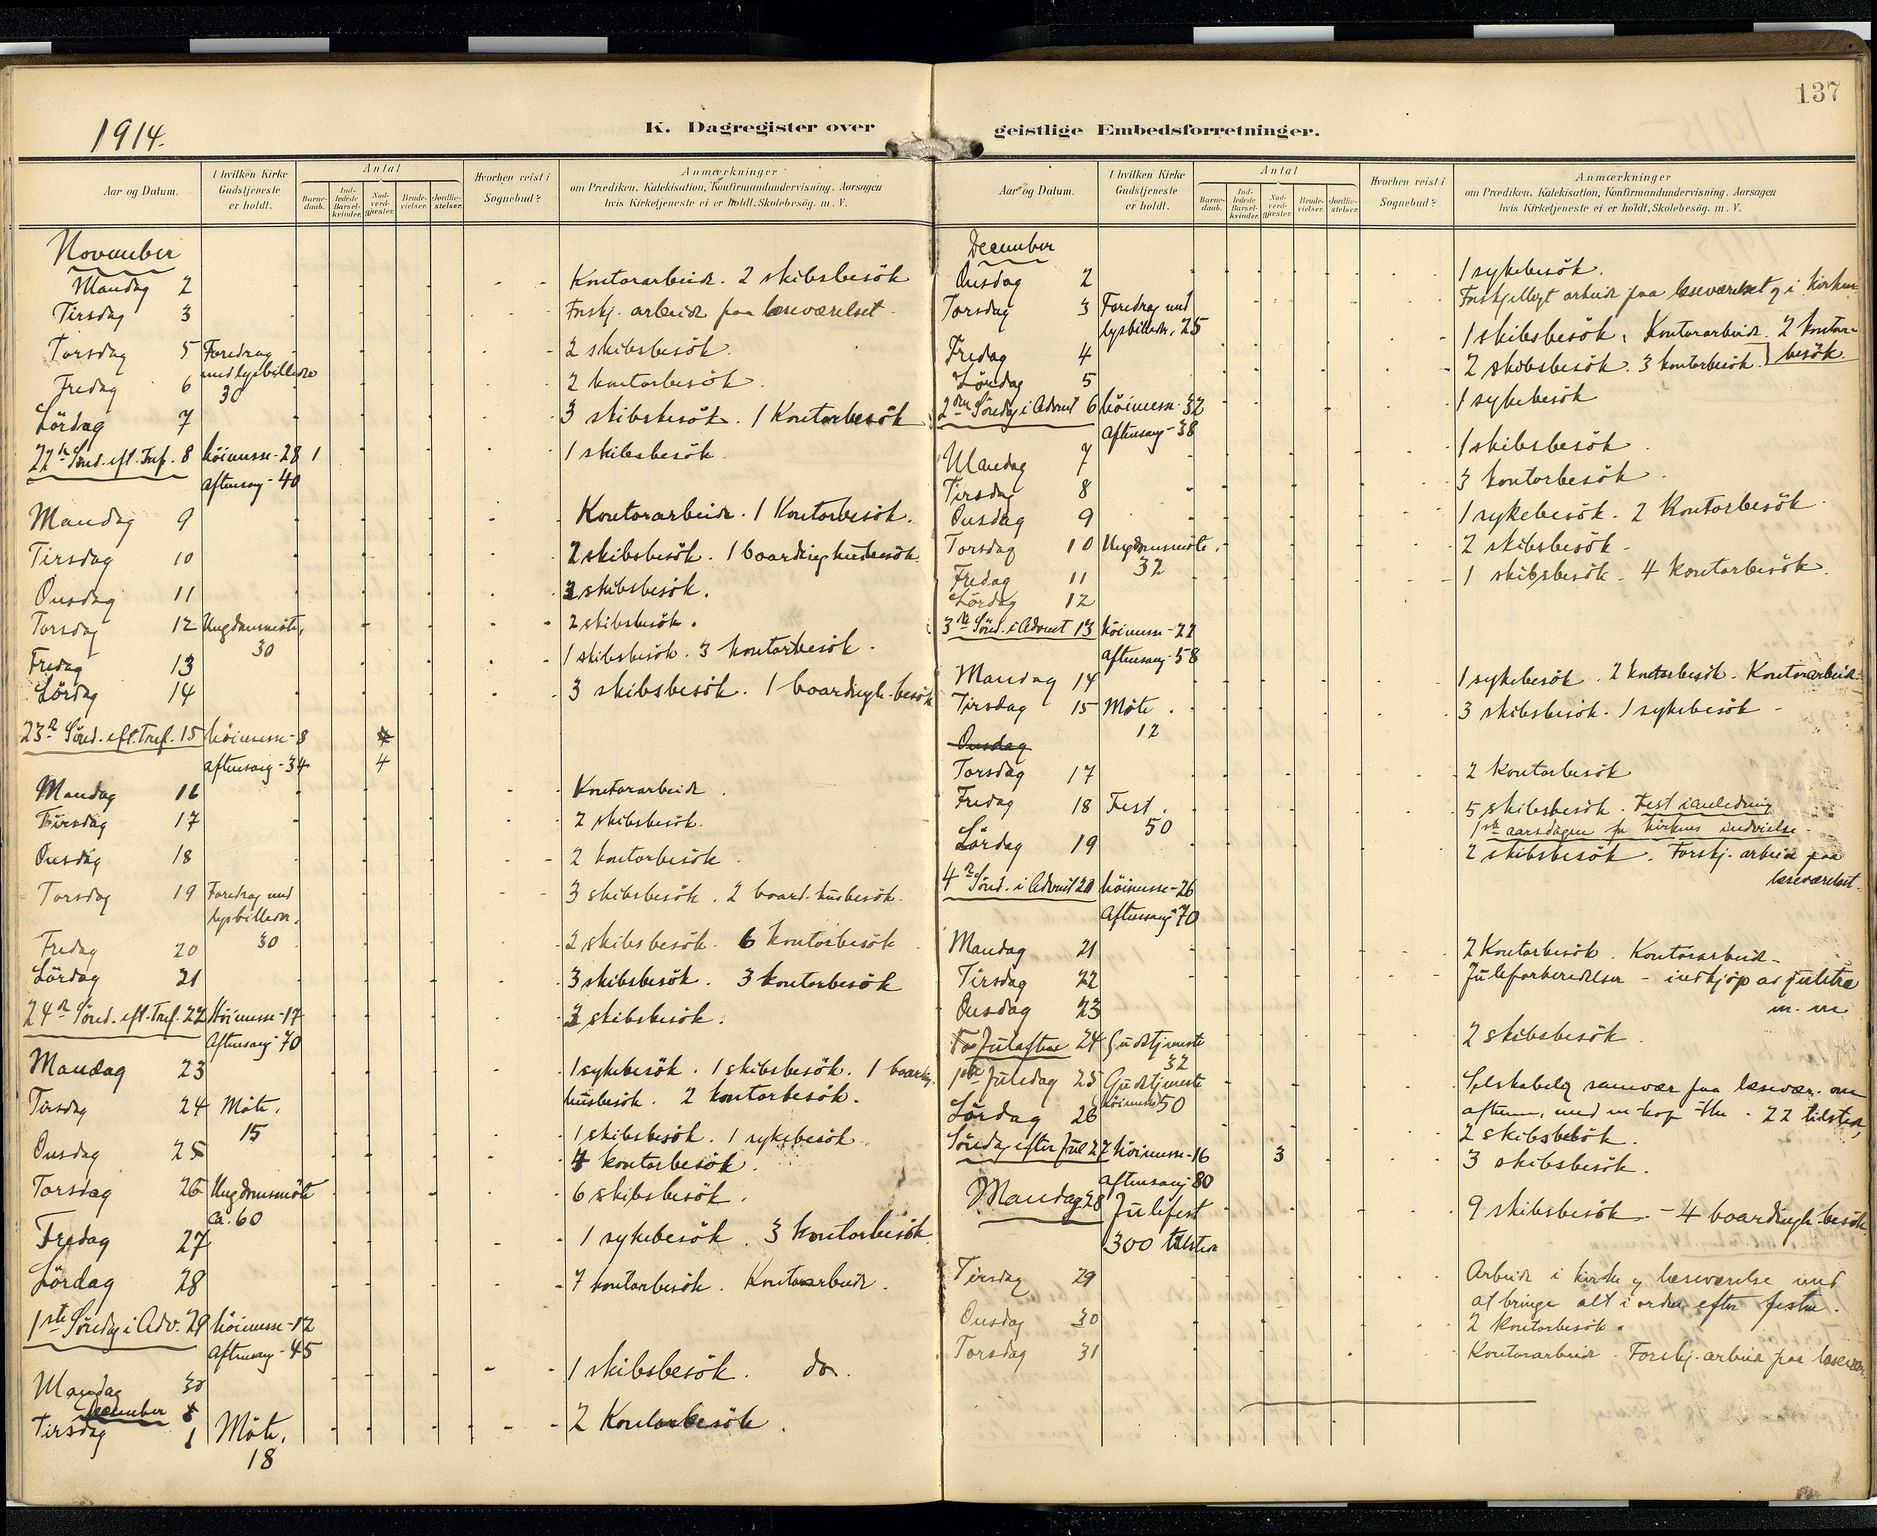 137
1914.
K. Dagregister over
geistlige Embedsforretninger.
Aar og Datum.
I hvilken Kirke Gudstjeneste er holdt.
Antal
Barnedaab.
Indledede Barselkvinder.
Nadverdgjester.
Brudevielser.
Jordfæstelser.
Hvorhen reist i Sognebud?
Anmærkninger
om Prædiken. Katekisation, Konfirmandundervisning. Aarsagen
hvis Kirketjeneste ei er holdt, Skolebesøg. m. V.
November
Mandag 2 Kontorarbeide. 2 skibsbesök
Tirsdag 3 Forskj. arbeide paa læseværelset
Torsdag 5 Foredrag 2 skibsbesök.
med lysbilleder
Fredag 6 30 2 kontorbesök.
Lördag 7 3 skibsbesök. 1 Kontorbesök
22de Sönd. eft. Tref. 8 höimesse - 28 1 1 skibsbesök.
aftensang - 40
Mandag 9 Kontorarbeide. 1 Kontorbesök.
Tirsdag 10 2 skibsbesök. 1 boardinghusbesök.
Onsdag 11 2 skibsbesök.
Torsdag 12 Ungdomsmöte, 2 skibsbesök.
30
Fredag 13 1 skibsbesök. 3 kontorbesök.
Lördag 14 3 skibsbesök. 1 boardingh-besök
23de Sönd. eft. Tref. 15 höimesse - 8
aftensang - 34 4
Mandag 16 Kontorarbeide.
Tirsdag 17 2 skibsbesök.
Onsdag 18 2 kontorbesök.
Torsdag 19 Foredrag med 3 skibsbesök. 2 board. husbesök.
lysbilleder.
Fredag 20 30 2 skibsbesök. 6 kontorbesök
Lördag 21 3 skibsbesök. 3 kontorbesök
24de Sönd. eft. Tref. 22 Höimesse - 17 3 skibsbesök.
Aftensang - 70
Mandag 23 1 sykebesök. 1 skibsbesök. 1 boarding
husbesök. 2 kontorbesök.
Tirsdag 24 Möte, 1 skibsbesök. 1 sykebesök.
15
Onsdag 25 4 kontorbesök.
Torsdag 26 Ungdomsmöte 6 skibsbesök.
ca. 60
Fredag 27 1 sykebesök. 3 kontorbesök
Lördag 28 7 kontorbesök. Kontorarbeide.
1ste Söndag i Adv. 29 höimesse - 12
aftensang - 45
Mandag 30 1 skibsbesök. do.
December
Tirsdag 1 Möte. 2 Kontorbesök.
18
Aar og Datum.
I hvilken Kirke Gudstjeneste er holdt.
Antal
Barnedaab.
Indledede Barselkvinder.
Nadverdgjester.
Brudevielser.
Jordfæstelser.
Hvorhen reist i Sognebud?
Anmærkninger
om Prædiken. Katekisation, Konfirmandundervisning. Aarsagen
hvis Kirketjeneste ei er holdt, Skolebesøg. m. V.
December
Onsdag 2 1 sykebesök.
Torsdag 3 Foredrag med Forskjelligt arbeide paa læseværelset og i kirken
lysbilleder, 25
Fredag 4 1 skibsbesök, Kontorarbeide. 2 kontor-
besök
Lördag 5 2 skibsbesök. 3 kontorbesök.
2den Söndag i Advent 6 höimesse - 32 1 sykebesök
aftensang - 38
Mandag 7 1 skibsbesök
Tirsdag 8 3 kontorbesök.
Onsdag 9 1 sykebesök. 2 Kontorbesök
Torsdag 10 Ungdomsmöte. 2 skibsbesök.
32
Fredag 11 1 skibsbesök. 4 kontorbesök.
Lördag 12
3de Sönd. i Advent 13 höimesse - 22
aftensang - 58
Mandag 14 1 sykebesök. 2 kontorbesök. Kontorarbeide
Tirsdag 15 Möte. 3 skibsbesök. 1 sykebesök
12
Onsdag
Torsdag 17 2 kontorbesök
Fredag 18 Fest. 5 skibsbesök. Fest i anledning
50 1ste aarsdagen for kirkens indvielse.
Lördag 19 2 skibsbesök. Forskj. arbeide paa
læseværelset.
4de Sönd. i Advent 20 höimesse - 26
Aftensang - 70
Mandag 21 2 Kontorbesök. Kontorarbeide
Tirsdag 22 Juleforberedelser - indkjöp av juletræ
m. m
Onsdag 23
Juleaften 24 Gudstjeneste 2 skibsbesök.
32
1ste Juledag 25 Gudstjeneste Selskabelig samvær paa læsevær. om
höimesse 50 aftenen, med 22 tilstede,
Lördag 26 2 skibsbesök.
Söndag efter Jul 27 höimesse - 16 3 3 skibsbesök.
aftensang - 80
Mandag 28 Julefest 9 skibsbesök. - 4 boardingh-besök
300 tilstede
Tirsdag 29 Arbeide i kirke og læseværelse med
at bringe alt i orden efter festen.
Onsdag 30 2 Kontorbesök.
Torsdag 31 Kontorarbeide. Forskj. arbeide paa læsevær.